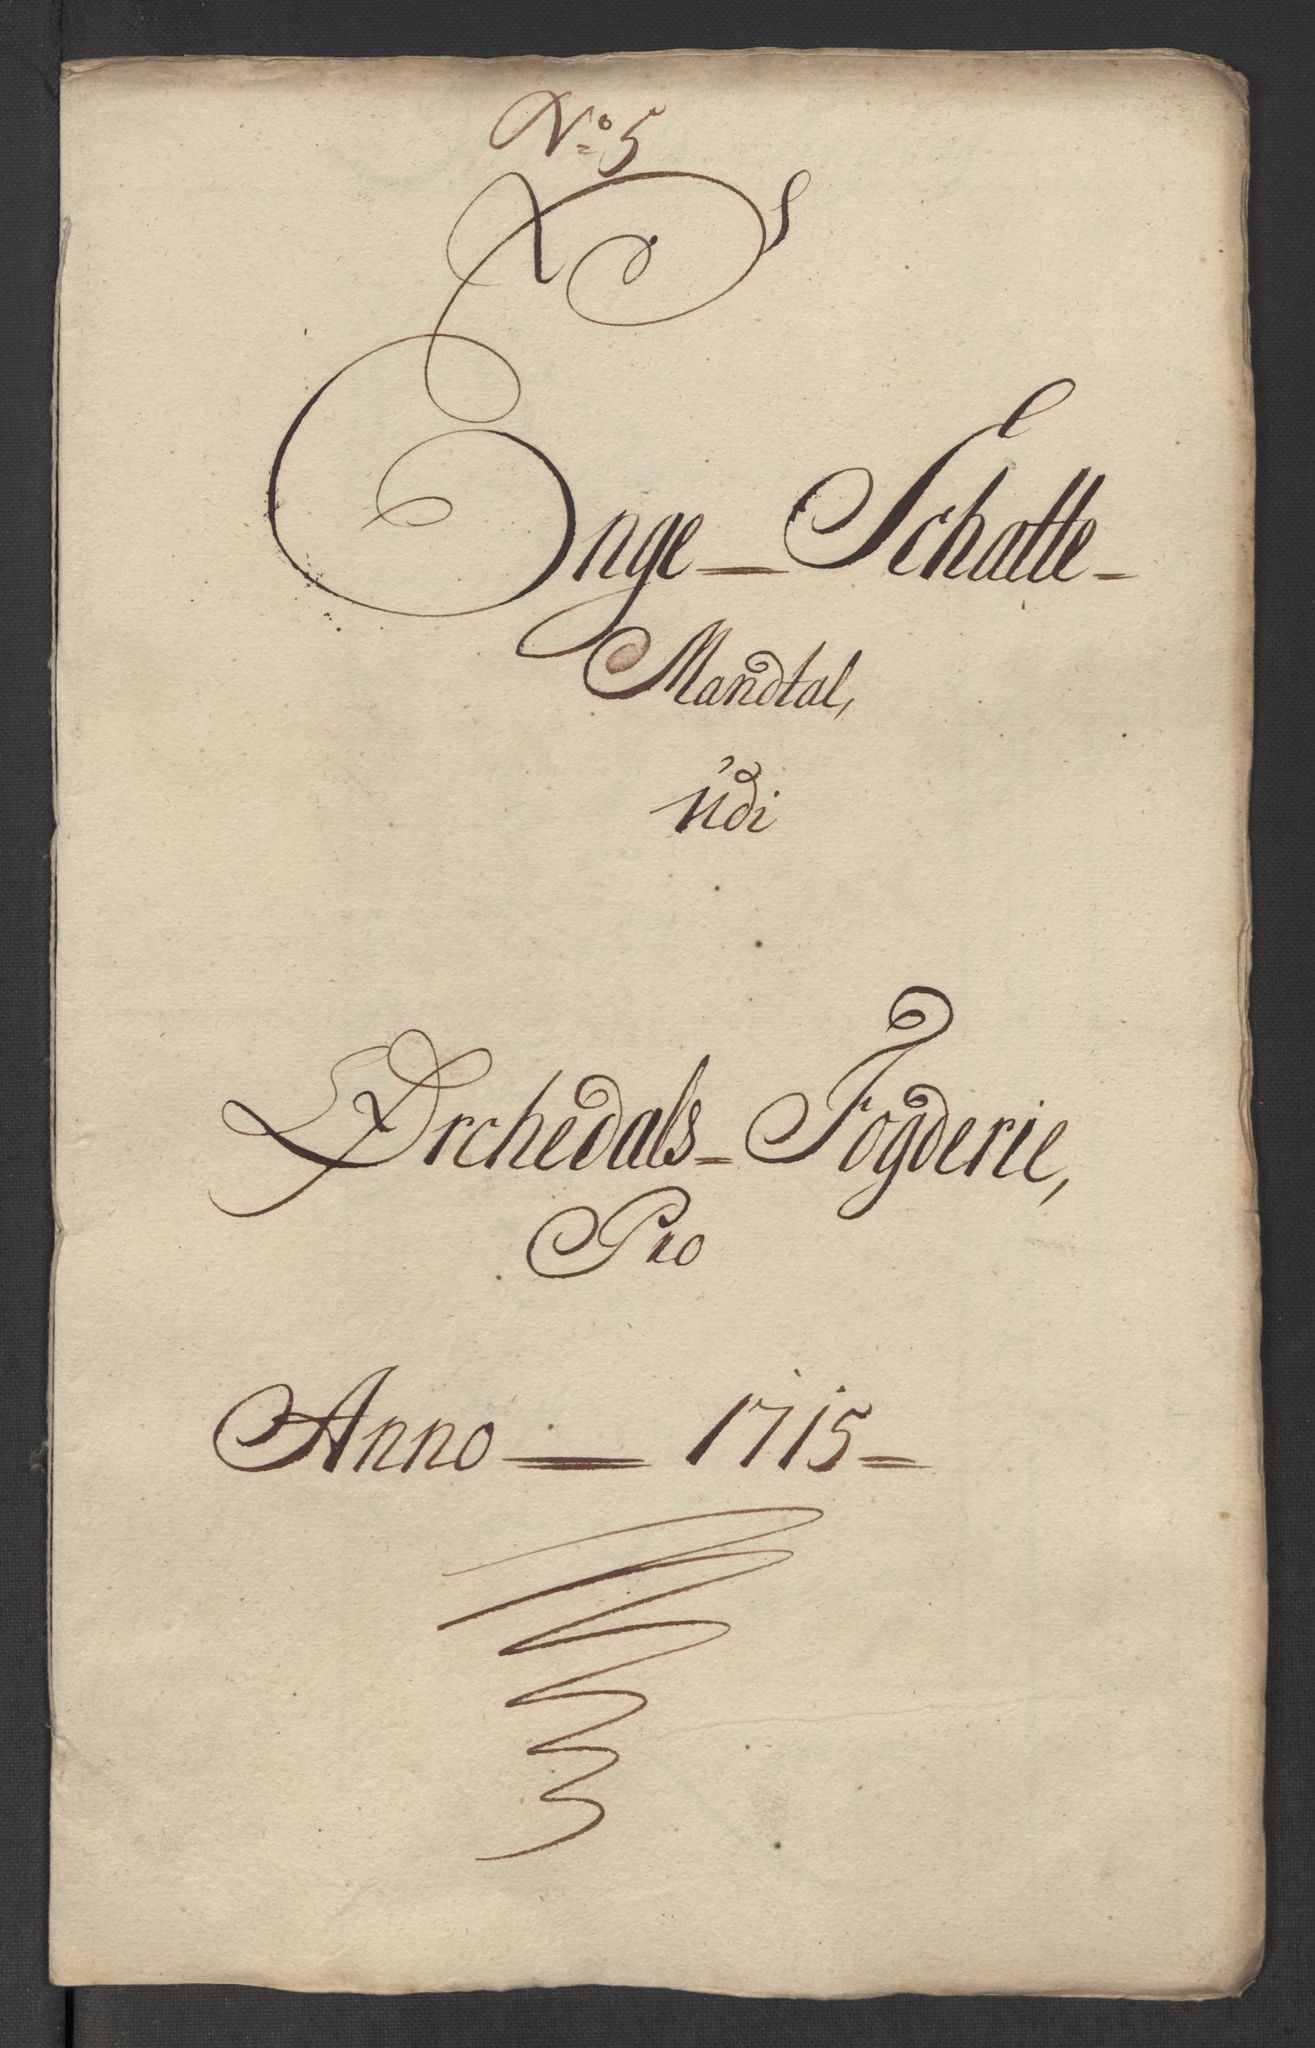 No 5
Enge - Schatte -
Mandtal,
Udi
Ørchedals - Fogderie,
Pro
Anno - 1715 -